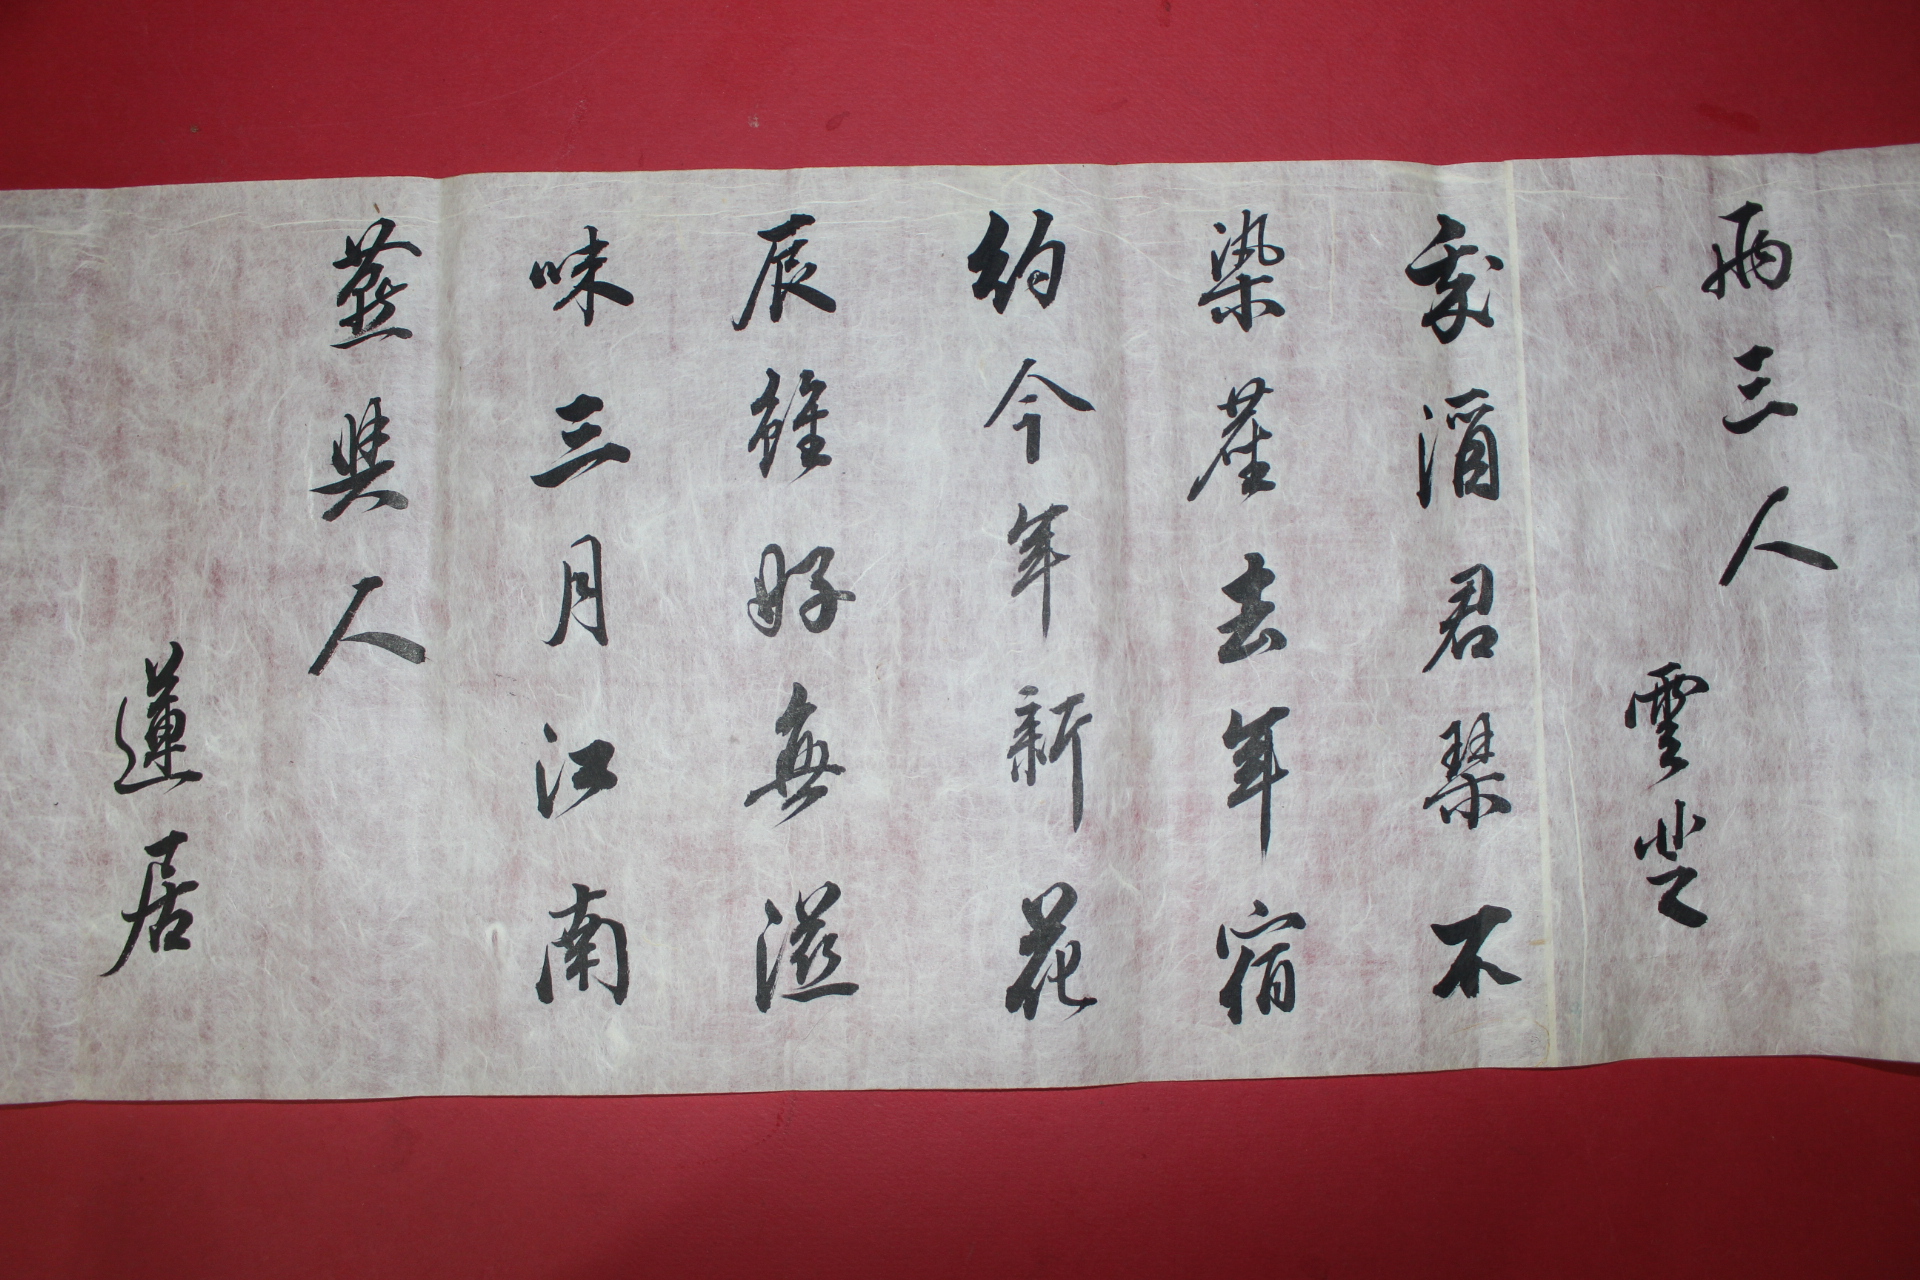 兩三人
雲芝
我酒君琴不
染塵去年宿
約今年新花
辰雖好無滋
味三月江南
燕與人
蓮居